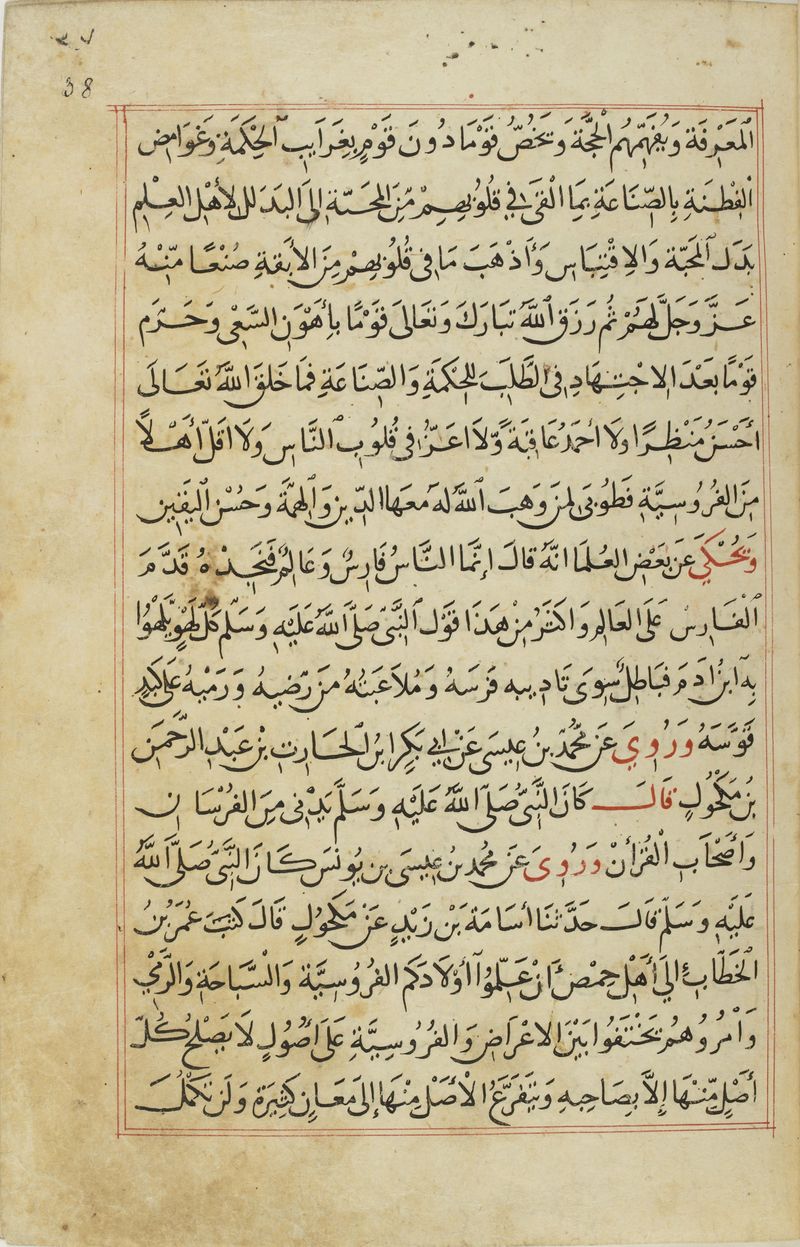 38
المَعْرِفَة وَيُفَهِّمَهُم الحُجَّة وَتَخُصُّ قَوْمًا دُونَ قَوْمٍ بِغَرَايِبِ الحِكْمَةِ وَغَوَامِض
الفِطْنَةِ بِالصِّنَاعَةِ بِمَا الْقَى فِي قُلُوبِهِمْ مِّنَ المَحَبَّة إلى البَدَل لأهْل العِلْمِ
بَدَلَ المَحَبَّة وَالاِقْتِبَاسِ وَأَذْهَبَ مَا فى قُلُوبِهِمْ مِنَ الأَبقةِ صُنْعًا مِّنْهُ
عَزَّ وَجَلَّ لَهُمْ ثُمَّ رَزَقَ اللَّهُ تَبَارَكَ وَتَعَالَى قَوْمًا بِأهْوَنِ السَّعْىِ وَحَرَم
قَوْمًا بَعْدَ الاِجْتِهَادِ فِى الطَّلَبَ لِلحِكْمَةِ وَالصِّنَاعَةِ فَمَا خَلَقَ اللَّهُ تَعَالَى
أحْسَنُ مَنْظِرًا وَلَا أحْمَدُ عَاقِبَةً وَّلَا اعَزُّ فى قُلُوبِ النَّاسِ وَلَا اقَلّ أهْلاً
مِنَ الفُرُوسِيَّةِ فَطُوبَى لِمَن وَهَبَ اللَّهُ لَهُ مَعهَا الدِّينِ وَالهِمَّة وَحُسْنِ اليَقِين
وَتُحْكَى عَن بَعْضِ العُلَمَا انَّهُ قالَ إنَّمَا النَّاسُ فَارِسٌ وَعَالِمٌ فَنَجِدْهُ قَدَّمَ
الفَارِسَ عَلَى العَالِمِ وَاكْثَرُ مِنْ هَذَا قَوْلُ النَّبِىِّ صَلَّى اللَّهُ عَلَيْهِ وَسَلَّمَ كُلّ لَهْوٍ يَلْهُوا
بِهِ ابنُ ادَمَ فَبَاطِلٌ سِوَى تَادِيبِهِ فَرَسَهُ وَمُلاَعَبَتُهُ مَن رَّضِيهُ وَرَمْيهُ عَلى كَبِدِ
قَوْسَهُ وَرُوِيَ عَن مُحَمَّد بنُ عِيسَى عَنْ ابِي بَكِرِ ابنُ الحَارِثِ بْنِ عَبْدِ الرَّحْمَنِ
بنُ مَكْحُولٍ قَالَ كَانَ النَّبِىُّ صَلَّى اللَّهُ عَلَيْهِ وَسَلَّمَ يُدْنى مِنَ الفُرْسَانِ
وَأَصْحَابِ الْقُرْأنِ وَرُوِىَ عَن مُحمدِ بنُ عِيسَى بنِ يُونسَ كَانَ النَّبِىُّ صَلَّى اللَّهُ
عَلَيْهِ وَسَلَّم قَالَ حَدَّثَنَا أسَامَة بَنْ زَيْدٍ عَنْ مَكحُولٍ قَالَ كَتبَ عُمَرُ بْنُ
الخَطَّابِ إلى أهْلِ حِمْصَ أنْ عَلِّمُوا أوْلَادَكم الفُرُوسِيَّة وَالسَّبَاحَةِ وَالرَّمْي
وَأمُرُوهُمْ تَخْتَفُوا بَيْنَ الاعْرَاضِ وَالفُرُوسِيَّةِ عَلَى أصُولٍ لَا يَصْلحُ كُلّ
أصْلٍ مِّنْهَا إِلاَّ بِصَاحِبِهِ وَيَتَفَرَّعُ الأصْل مِنْهَا إلى مَعَانٍ كَثِيرَة وَلَن تَكْمُلَ